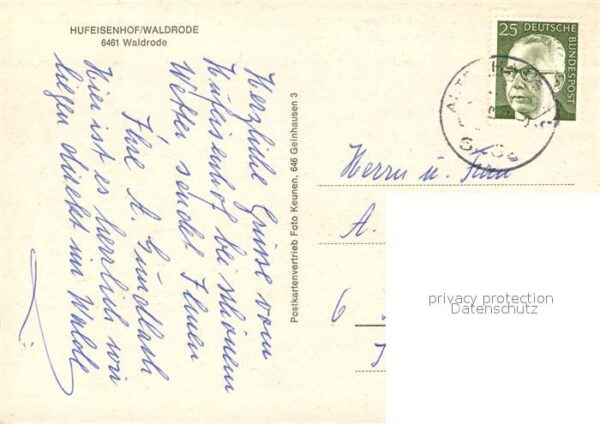 HUFEISENHOF/WALDRODE
6461 Waldrode
Herzliche Grüsse vom
Hufeisenhof bei schönem
Wetter sendet Ihnen
Ihre A. Gundlach
Hier ist es herrlich wir
liegen direkt im Walde
Postkartenvertrieb Foto Keunen, 646 Gelnhausen 3
25 DEUTSCHE BUNDESPOST
Herrn u. Frau
A.
6
privacy protection
Datenschutz